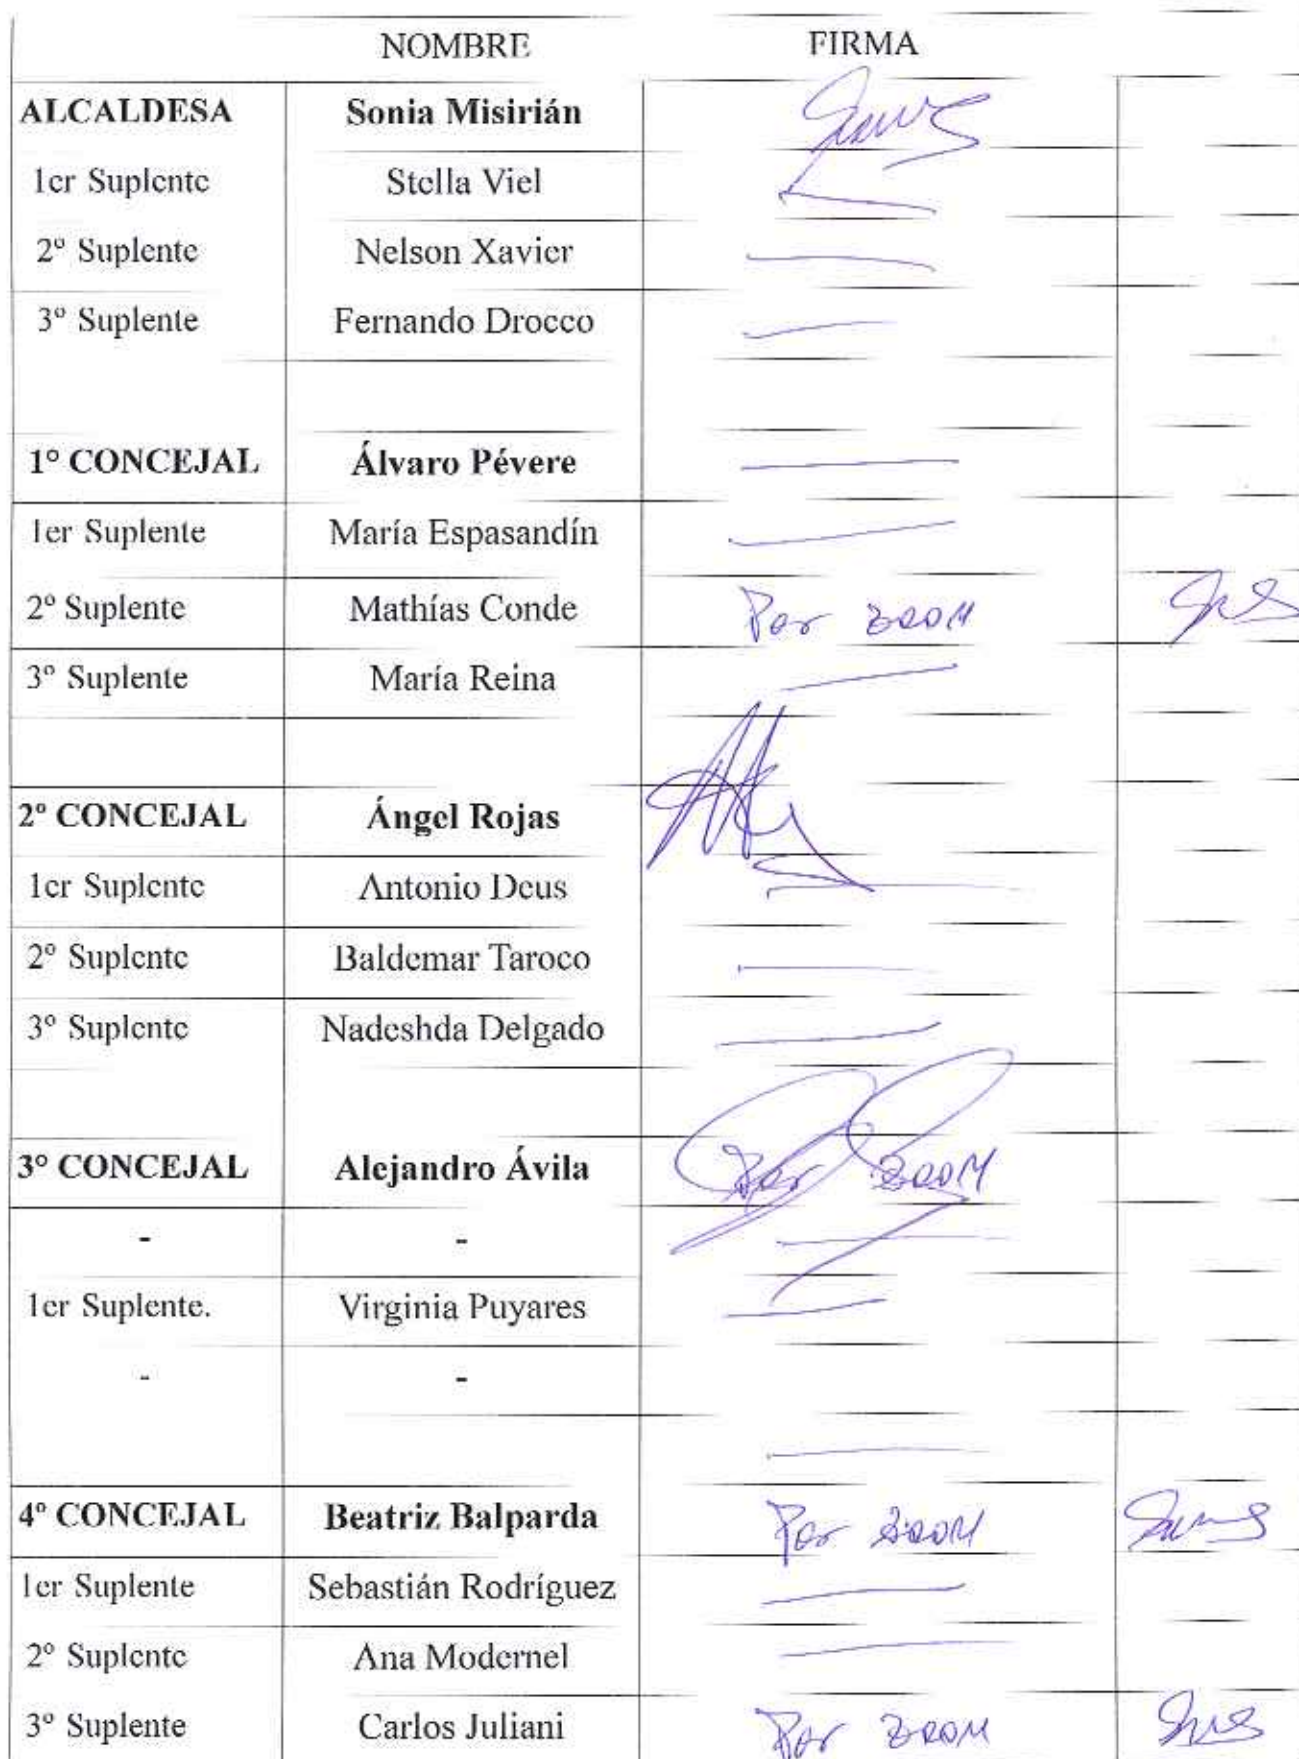 NOMBRE FIRMA
ALCALDESA Sonia Misirián
1er Suplente Stella Viel
2º Suplente Nelson Xavier
3º Suplente Fernando Drocco
1º CONCEJAL Álvaro Pévere
1er Suplente María Espasandín
2º Suplente Mathías Conde Por ZOOM
3º Suplente María Reina
2º CONCEJAL Ángel Rojas
1er Suplente Antonio Deus
2º Suplente Baldemar Taroco
3º Suplente Nadeshda Delgado
3º CONCEJAL Alejandro Ávila Por ZOOM
- -
1er Suplente. Virginia Puyares
- -
4º CONCEJAL Beatriz Balparda Por ZOOM
1er Suplente Sebastián Rodríguez
2º Suplente Ana Modernel
3º Suplente Carlos Juliani Por ZOOM